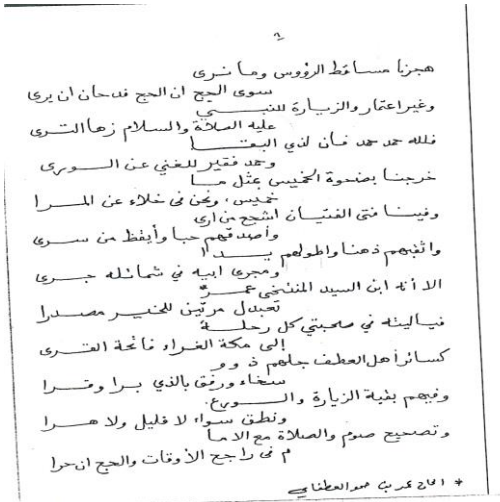 ٦
هجرنا مساقط الرؤوس وما نرى
سوى الحج ان الحج قد حان ان يرى
وغير اعتمار والزيارة للنبـــي
عليه الصلاة والسلام زها الثرى
فلله حمد حمد فان لذي البقـــا
وحمد فقير للغني عن الـــورى
خرجنا بضحوة الخميس بمثل ما
خميس، ونحن في خلاء عن المـــرا
وفينا فتى الفتيان اشجع من ارى
وأصدقهم حبا وأيقظ من ســـرى
واثقبهم ذهنا واطولهم يـــدا
ومجرى ابيه في شمائله جـــرى
الا أنه ابن السيد المنتخى عمـر
مرتين للخـير مصـدرا
فياليته في صحبتي كل رحلـــة
إلى مكة الغراء فاتحة القـــرى
كسائر أهل العطف جلهم ذوو
سخاء ورفق بالذي برا وقـــرا
وفيهم بقية الزيارة والـــورع
ونطق سواء لا قليل ولا هـــرا
وتصحيح صوم والصلاة مع الاما
م في راجح الأوقات والحج ان حرا
* الحاج عمر بن